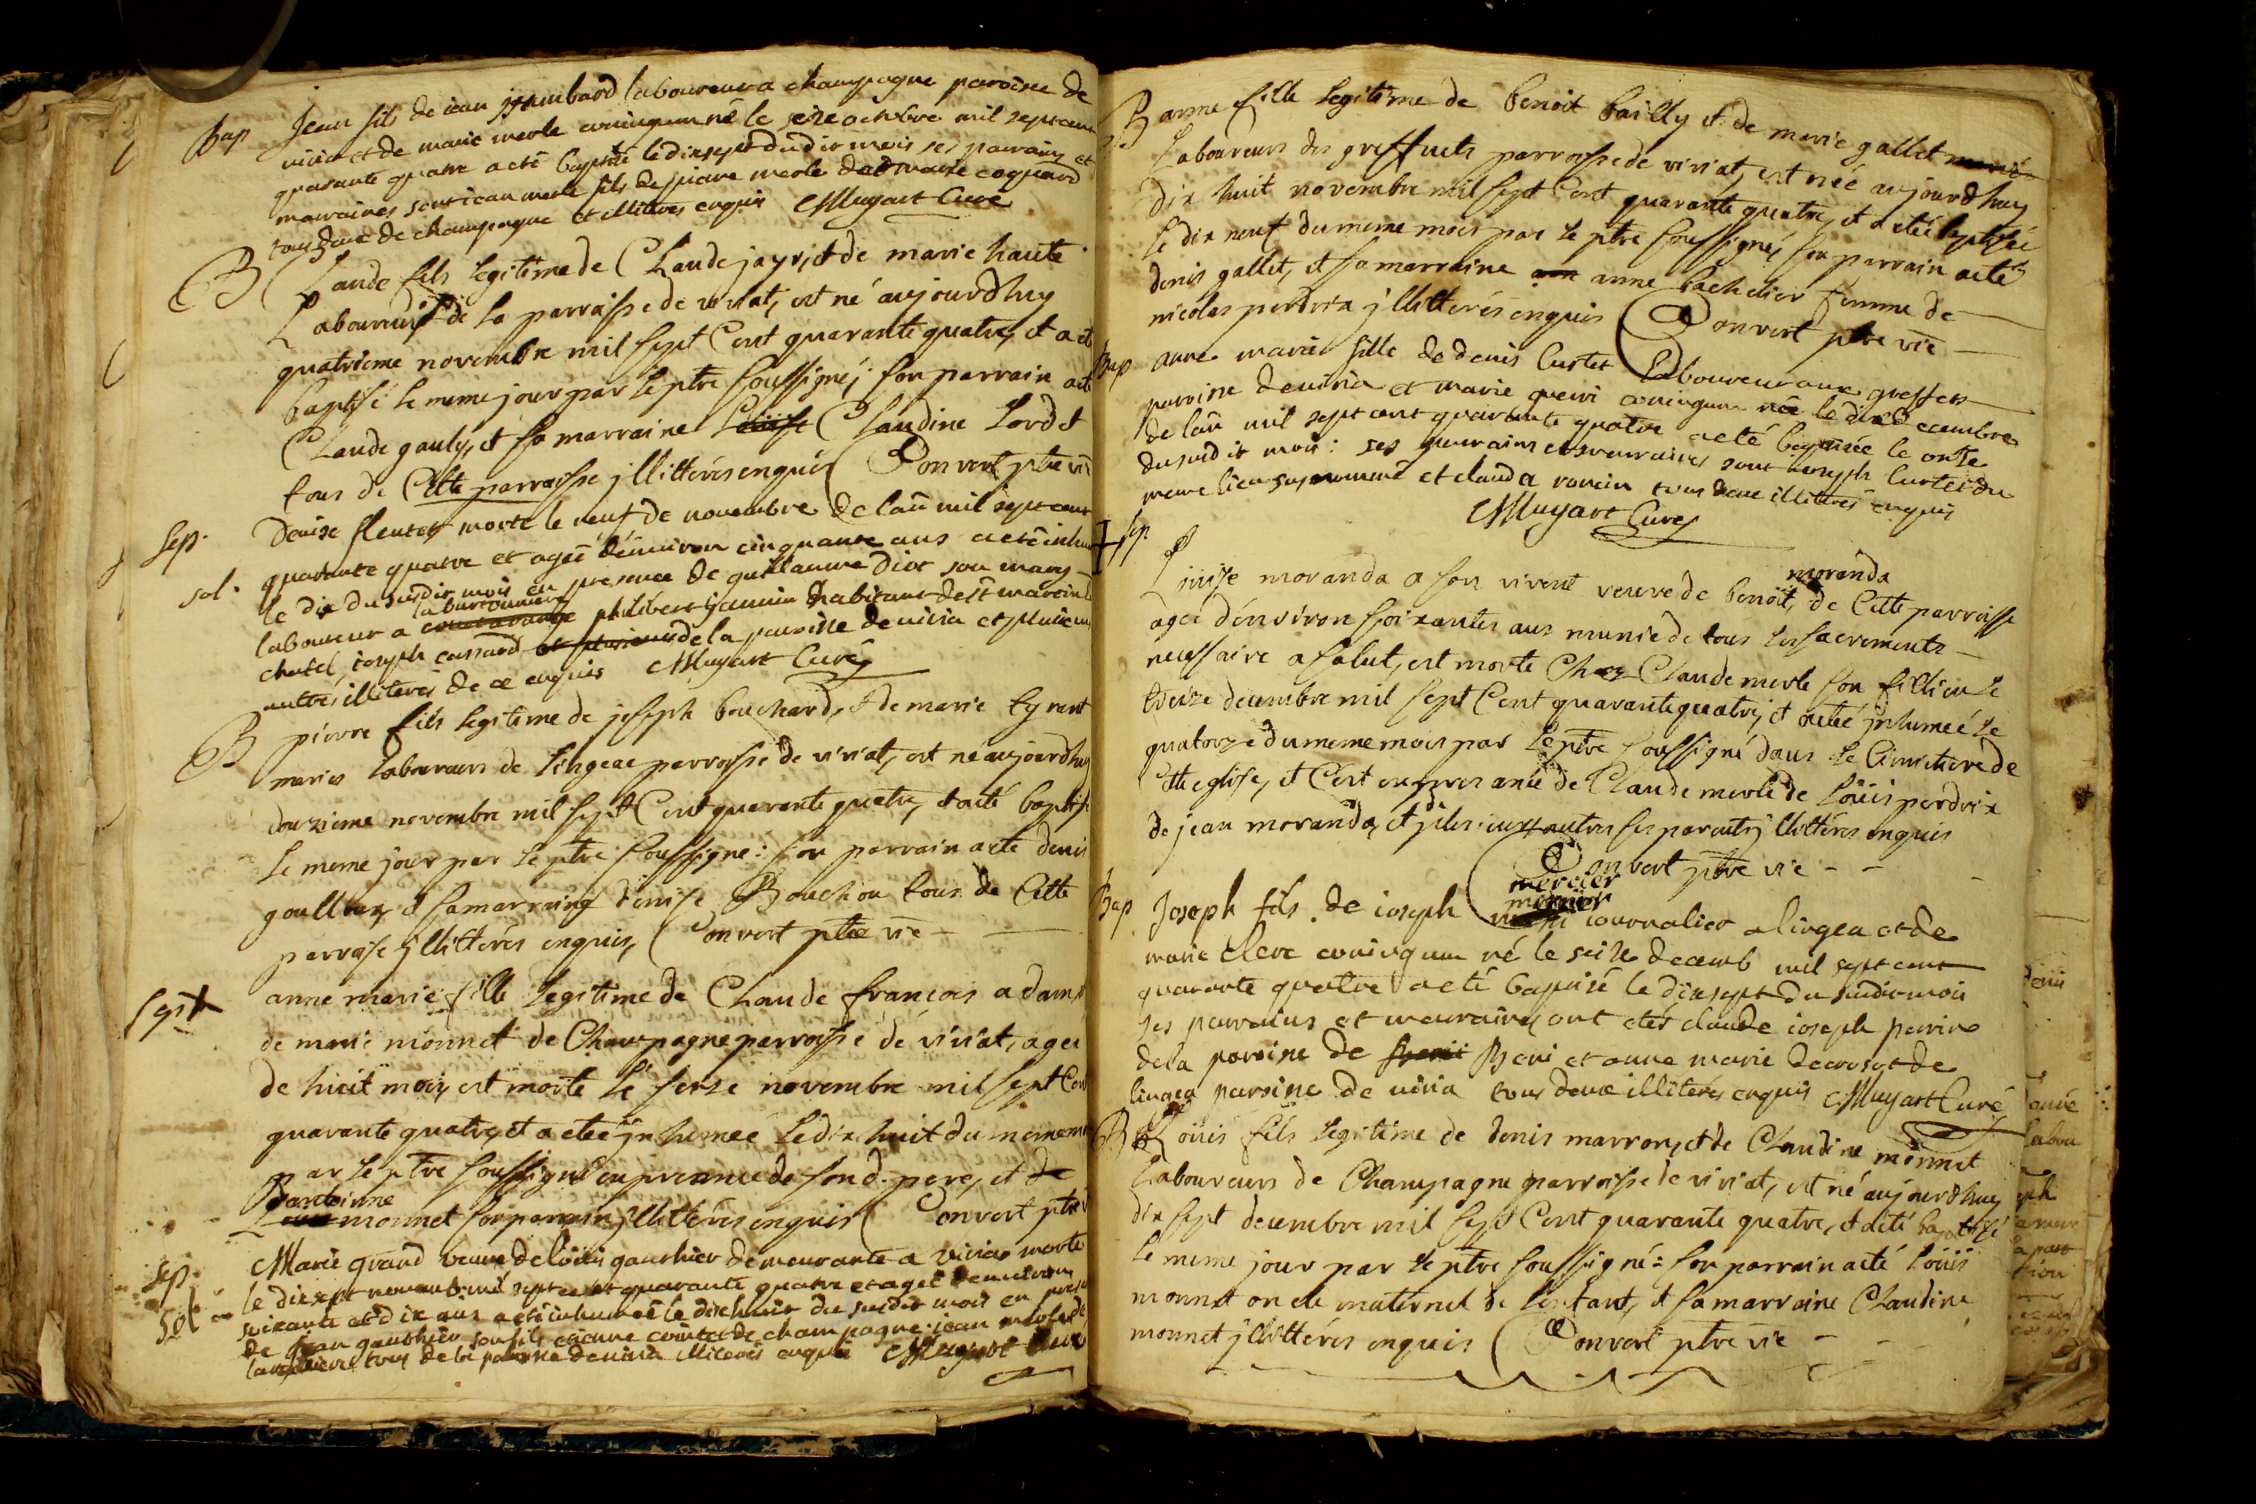 Bap Jean fils de iean jambard laboureur a champagne paroisse de
viria et de marie merle coniugum né le seize octobre mil sept cent
quarante quatre a eté baptisé le dixsept dudit mois ses parains et
maraines sont iean merle fils de pierre merle et marie coquard
tous deux de champagne et illiteres enquis CMuyart Curé
B Claude fils legitime de Claude jayr, et de marie haute
Laboureurs de la parroisse de viriat, est né aujourdhuy
quatrieme novembre mil sept Cent quarante quatre, et a eté
baptisé le meme jour par le ptre soussigné; son parrain a eté
Claude gauly, et sa marraine Claudine Lordet
tous de Cette parroisse jllitterés enquis Convert ptre vie
Sep. Denise fleutet morte le neuf de novembre de lan mil sept cent
sol. quarante quatre et ageé denviron cinquante ans a eté inhumé
le dix du susdit mois en presence de guillaume Dioc son mary
laboureur a la bourdonniere philibert jannin habitant de st martin le
chatel, ioseph cassard de la paroisse de viria et plusieurs
autres illiterés de ce enquis CMuyart Curé
B pierre fils legitime de joseph bouchard, et de marie tyrent
mariés Laboureurs de Lingeac parroisse de viriat, est né aujourdhuy
douzieme novembre mil sept Cent quarante quatre, et a eté baptisé
le meme jour par le ptre soussigné: son parrain a eté denis
goullion, et sa marraine denise Bouchon tous de Cette
parroisse jllitterés enquis, Convert ptre vie
Sept anne marie fille legitime de Claude françois adam, et
de marie monnet de Champagne parroisse de viriat, ageé
de huit mois est morte le seize novembre mil sept Cent
quarante quatre, et a eteé jnhumeé le dix huit du meme mois
par le ptre soussigné en presence de son d. pere, et de
antoinne
monnet son parrain jllitterés enquis Convert ptre
Sep. Marie grand veuve de louis gauthier demeurante a viria morte
Sol le dixsept novembre mil sept cent quarante quatre et ageé denviron
soixante et dix ans a eté inhumeé le dixhuit du susdit mois en presence
de jean gauthier son fils etienne cointet de champagne: jean
tous de la paroisse de viria illiterés enquis CMuyart Curé
B anne fille legitime de benoit bailly et de marie gallet
Laboureurs des greffiets parroisse de viriat, est née aujourdhuy
dix huit novembre mil sept Cent quarante quatre, et a eteé baptiseé
le dix neuf du meme mois par le ptre soussigné, son parrain a eté
denis gallet, et sa marraine anne bachelier femme de
nicolas perdrix jllitterés enquis Convert ptre vie
Bap anne marie fille de denis Curtet laboureur aux greffets
paroisse de viria et marie queiri coniugum née le dix decembre
de lan mil sept cent quarante quatre a eté baptisée le onze
du susdit mois: ses parrains et marraines sont ioseph Curtet du
meme lieu susnommé et clauda ravein tous deux illiterés enquis
CMuyart Curé
Sep
Louise moranda a son vivent veuve de benoit moranda, de Cette parroisse
ageé denviron soixantes ans munie de tous les sacrements
necessaire a salut, est morte Chez Claude merle son fillieu le
treize decembre mil sept Cent quarante quatre, et a eté jnhumeé le
quatorze du meme mois par le ptre soussigné dans le Cimetiere de
Cette eglise, et C'est en presance de Claude merle de Loüis perdrix
de jean moranda, et plusieurs autres ses parents jllitterés enquis
Convert ptre vie
Bap Joseph fils de ioseph mercier iournalier a lingea et de
marie Clerc coniugum né le seize decemb mil sept cent
quarante quatre a eté baptisé le dixsept du susdit mois
ses parrains et maraines ont etés claude ioseph perrin
de la paroisse de Beni et anne marie decrosat de
lingea paroisse de viria tous deux illiterés enquis CMuyart Curé
B Loüis fils legitime de denis marron, et de Claudine monnet
Laboureurs de Champagne parroisse de viriat, est né aujourdhuy
dix sept decembre mil sept Cent quarante quatre, et a eté baptisé
le meme jour par le ptre soussigné: son parrain a eté loüis
monnet oncle maternel de lenfant, et sa marraine Claudine
monnet jllitterés enquis Convert ptre vie